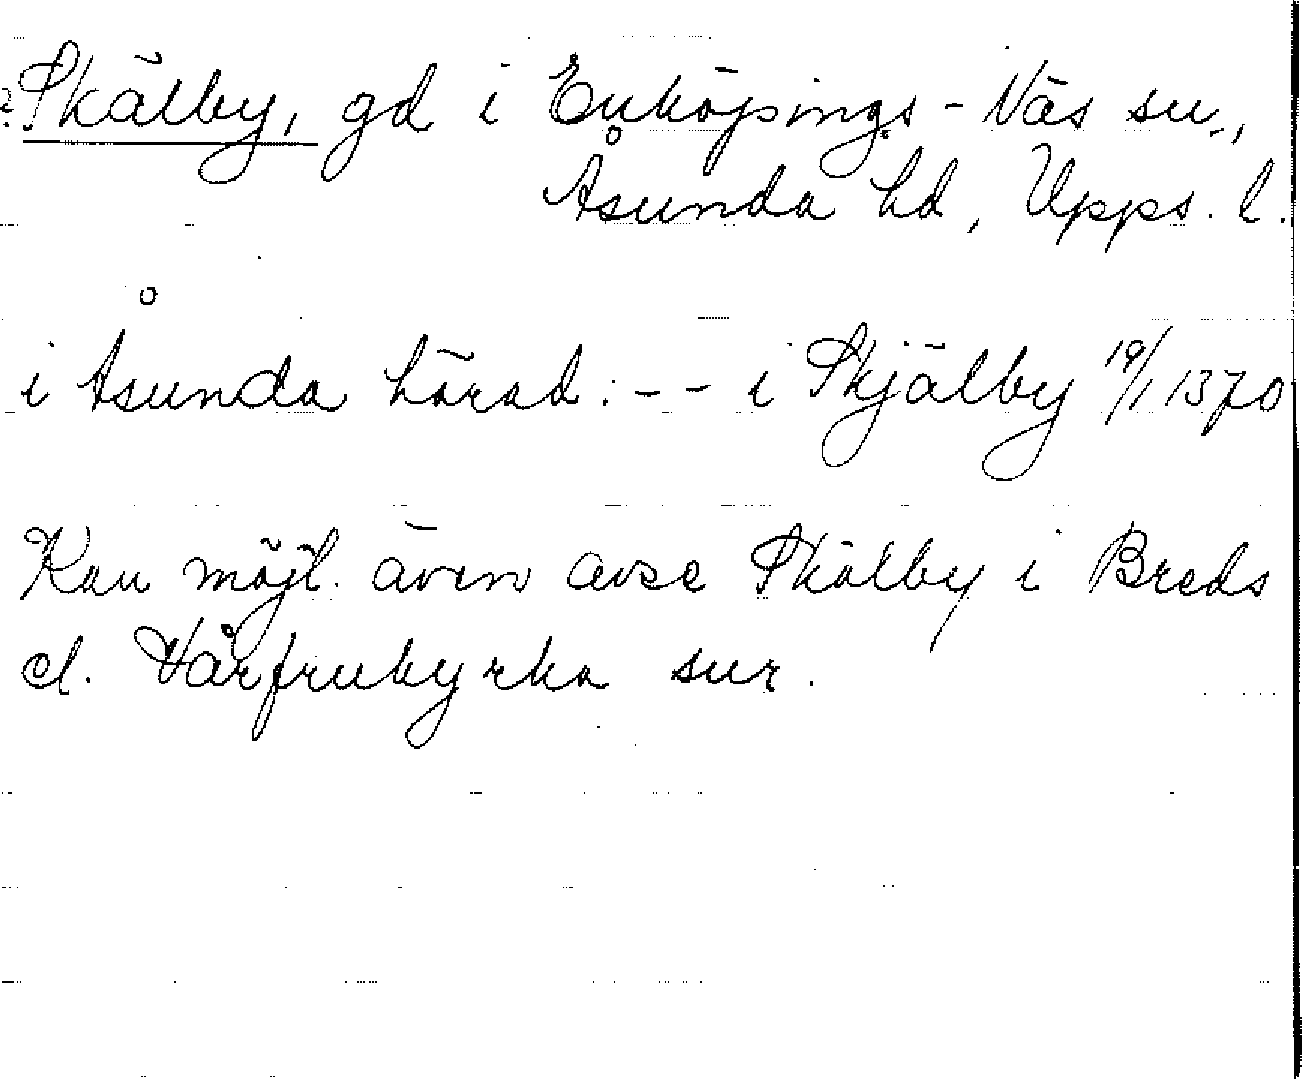 ? Skälby, gd i Enköpings-Näs sn.,
Åsunda hd, Upps. l.
i Åsunda härad: - - i Skjälby 19/1 1370
Kan möjl. även avse Skälby i Breds
el. Vårfrukyrka snr.